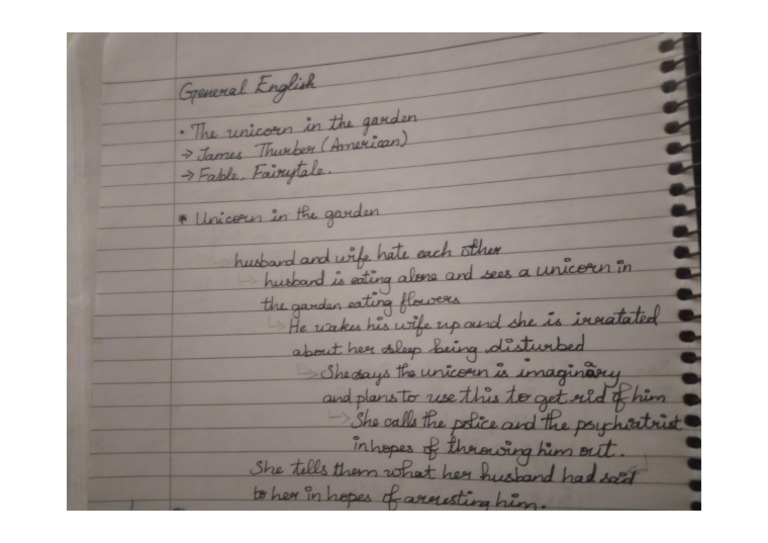 General English
• The unicorn in the garden
→ James Thurber (American)
→ Fable, Fairytale.
• Unicorn in the garden
↳ husband and wife hate each other
↳ husband is eating alone and sees a unicorn in
the garden eating flowers
↳ He wakes his wife up and she is irratated
about her sleep being disturbed
↳ She says the unicorn is imaginary
and plans to use this to get rid of him
↳ She calls the police and the psychiatrist
in hopes of throwing him out.
She tells them what her husband had said
to her in hopes of arresting him.